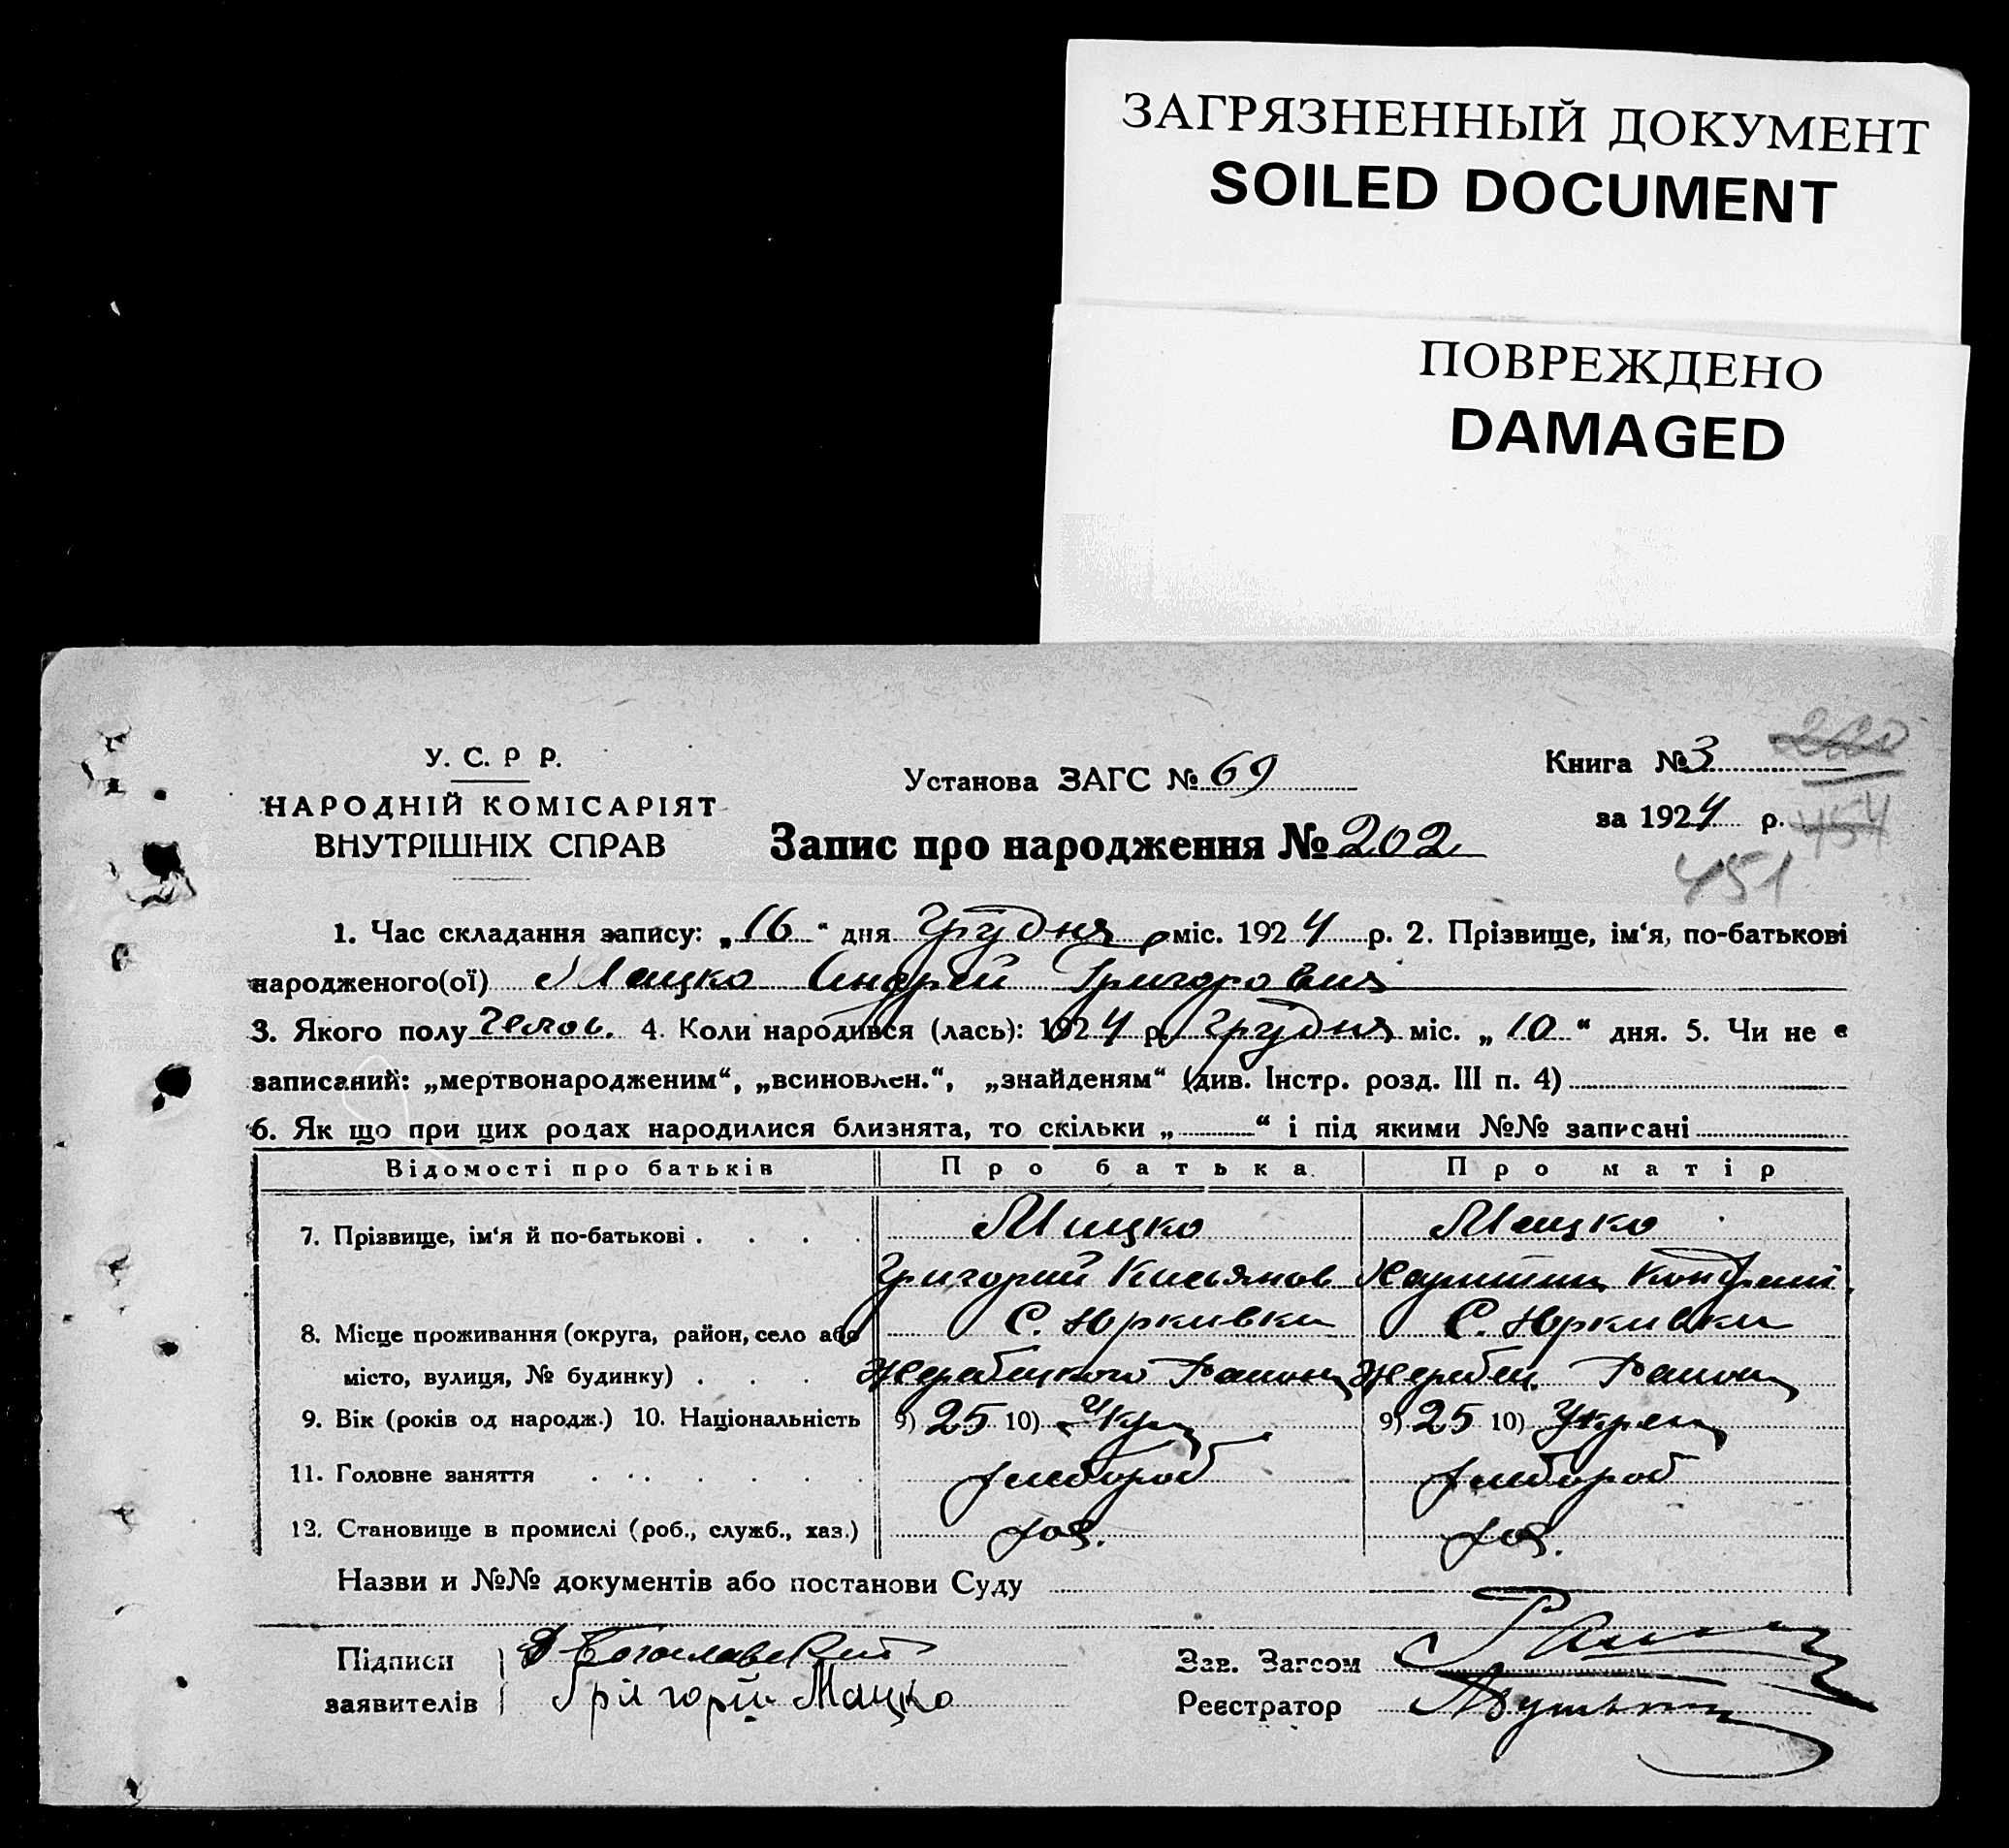 ЗАГРЯЗНЕННЫЙ ДОКУМЕНТ
SOILED DOCUMENT
ПОВРЕЖДЕНО
DAMAGED
У. С. Р Р.
НАРОДНІЙ КОМІСАРІЯТ
ВНУТРІШНІХ СПРАВ
Установа ЗАГС № 69
Запис про народження № 202
Книга № 3
за 1924 р.
454
451
1. Час складання запису: „16“ дня Грудня міс. 1924 р. 2. Прізвище, ім‘я, по-батькові
народженого(ої) Мацко Андрей Григорович
3. Якого полу челов. 4. Коли народився (лась): 1924 р. Грудня міс. „10“ дня. 5. Чи не є
записаний: „мертвонародженим“, „всиновлен.“, „знайденям“ (див. Інстр. розд. III п. 4)
6. Як що при цих родах народилися близнята, то скільки „ “ і під якими №№ записані
Відомості про батьків Про батька. Про матір
7. Прізвище, ім‘я й по-батькові . . . . Мацко Мацко
Григорий Касьянов
8. Місце проживання (округа, район, село або С. Юркивка С. Юркивка
місто, вулиця, № будинку) . . . Жеребецкого Района Жеребец. Района
9. Вік (років од народж.) 10. Національність 9) 25 10) Укр 9) 25 10) Украй
11. Головне заняття . . . . . . хлебороб хлебороб
12. Становище в промислі (роб., служб., хаз.) хоз. хоз.
Назви и №№ документів або постанови Суду
Підписи Богославский Зав. Загсом
заявителів Григорій Мацко Реєстратор